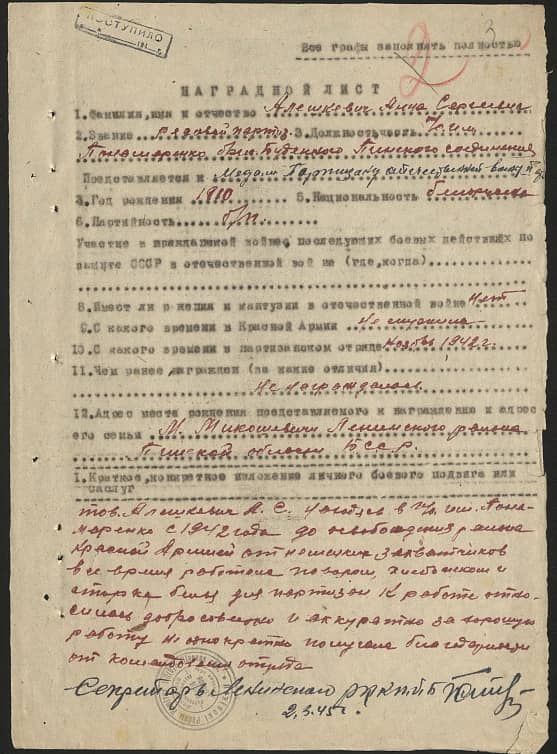 ПОСТУПИЛО
3
2
Все графы заполнять полностью
НАГРАДНОЙ ЛИСТ
1.Фамилия,имя и отчество Алешкевич Анна Сергеевна
2.Звание рядовой партиз. 3.Должность,часть п/о им.
Пономаренко бриг. Буденного Пинского соединения
Представляется к Медали Партизану отечественной войны II ст.
3.Год рождения 1910 5.Национальность белоруска
6.Партийность б/п
Участие в гражданской войне, последующих боевых действиях по
защите СССР в отечественной войне (где,когда)
8.Имеет ли ранения и контузии в отечественной войне нет
9.С какого времени в Красной Армии не служила
10.С какого времени в партизанском отряде ноябрь 1942 г.
11.Чем ранее награжден (за какие отличия)
не награждалась
12.Адрес места рождения представляемого к награждению и адрес
его семьи М. Микашевичи Ленинского района
Пинской области БССР.
1.Краткое,конкретное изложение личного боевого подвига или
заслуг
тов. Алешкевич А. С. находясь в п/о им. Поно-
маренко с 1942 года до освобождения района
Красной Армией от немецких захватчиков
все время работала поваром, хлебопеком и
стирка белья для партизан к работе отно-
силась добросовестно и аккуратно за хорошую
работу неоднократно получала благодарности
от командования отряда
Секретарь Ленинского РК КП(б)Б
2.3.45 г.